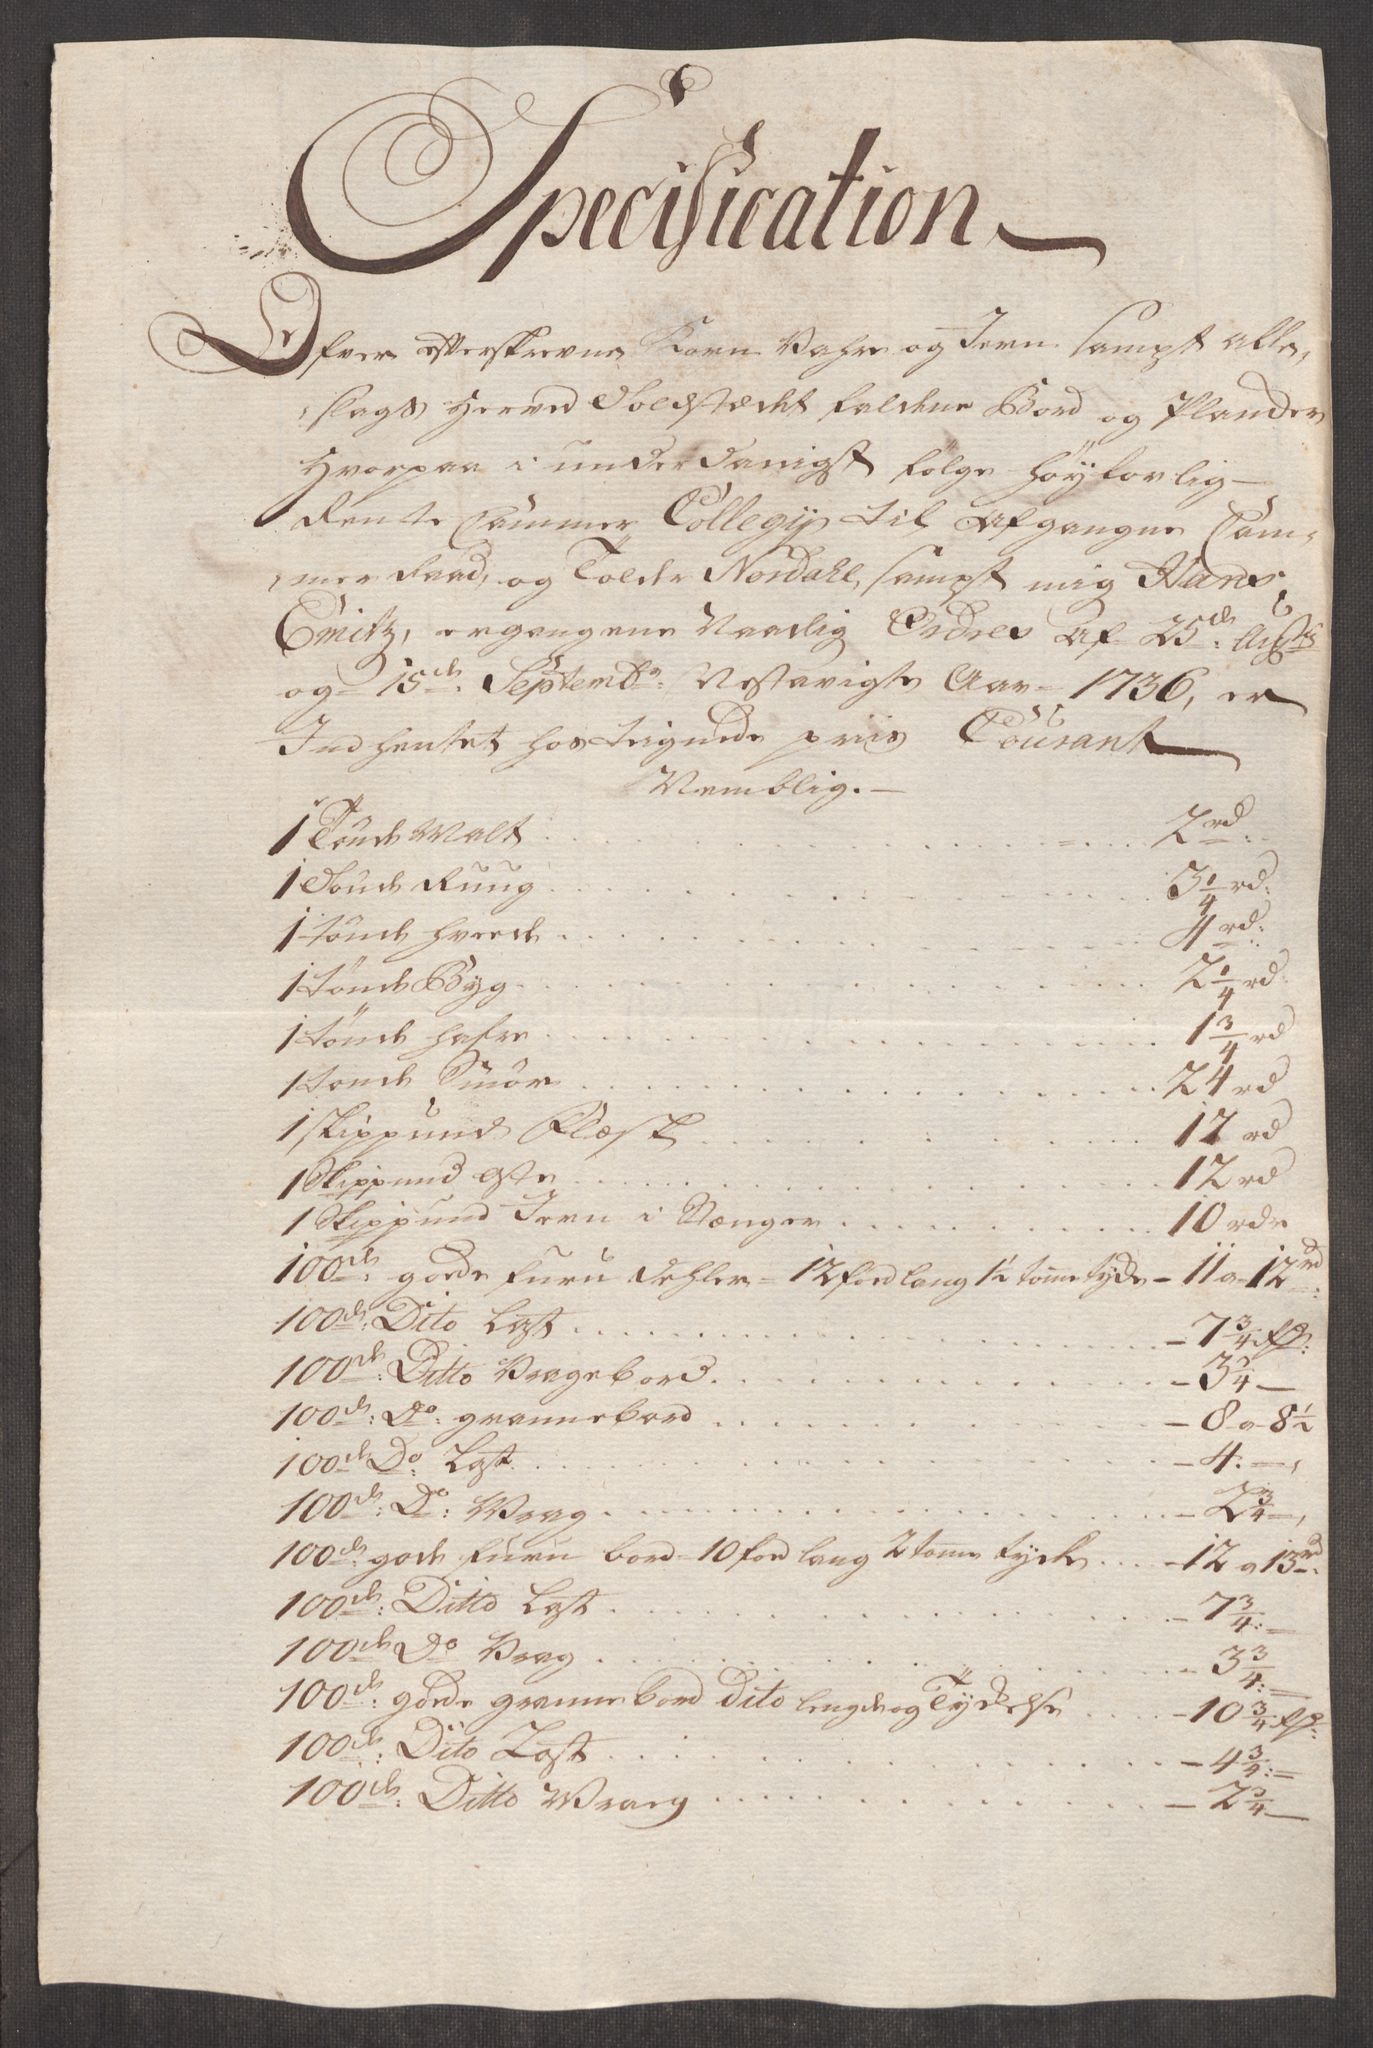 Specification
Ofver effterskrevne Korn Vahre og Jern sampt alle,
slags herved Toldstædet faldene Bord og Plancker
Hvorpaa i underdanigst følge höÿforlig
Rente Cammer Collegÿ til afgangne Cam,
mer Raad, og Tolder Nordahl, sampt mig Hans
Emitz, ergangene Naadig Ordres af 25de Augsti
og 15de: Septembr: Nestavigte Aar 1736, er
Indhentet hostegnede priis Courant
Nemblig.
1 Tönde Malt . . . 2 rd:
1 Tönde Ruug . . . 3 1/4 rd:
1 tönde hvede . . . 4 rd:
1 tönde Byg . . . 2 1/4 rd
1 tönde hafre . . . 1 3/4 rd
1 tønde Smör . . . 24 rd
1 skippund Flæsk . . . 12 rd
1 Skippund Oste . . . 12 rd
1 Skippund Jern i Stænger . . . 10 rdr
100de: goede furu dehler 12 foed lang 1 1/2 tome tyde - 11 a 12 rd
100de: Dito Last . . . - 7 3/4
100de: Ditto Vragebord . . . - 3 3/4 -
100de: Do: grannebord . . . - 8 a 8 1/2
100de Do: Last . . . - 4. -
100de: Do: Wrag . . . - 2 3/4 -
100de: gode furu bord 10 fod lang 2 tome tycke . . . - 12 a 13 rd:
100de: Ditto Last . . . - 7 3/4:
100de Do Vrag . . . - 3 3/4:
100de: goede granne bord dito lengde og Tÿckelse . . . - 10 3/4
100de: Dito Last . . . - 4 3/4:
100de: Ditto Wrarg . . . - 2 3/4 -